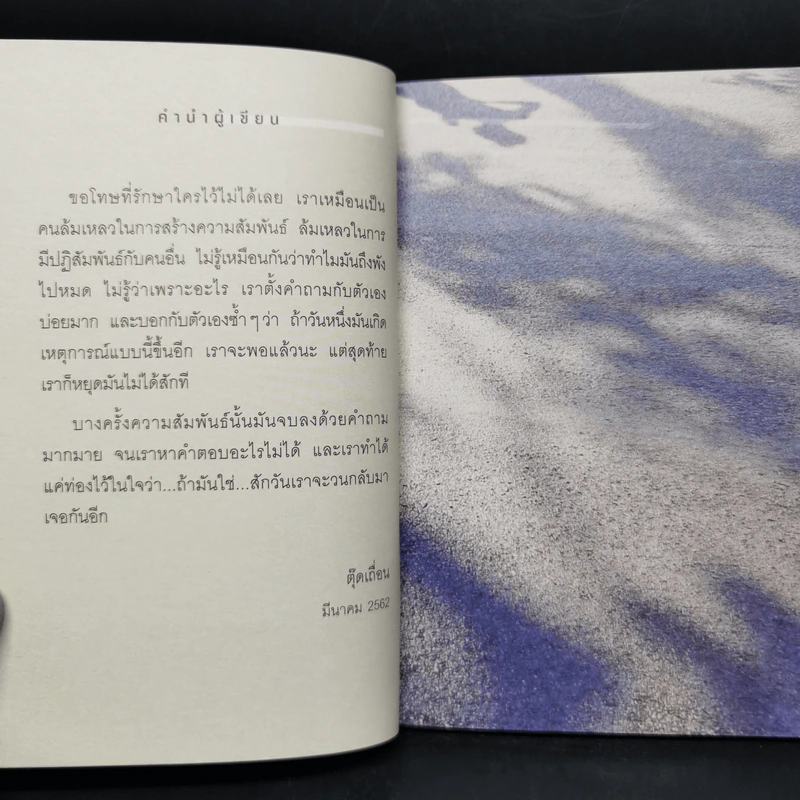 คำนำผู้เขียน
ขอโทษที่รักษาใครไว้ไม่ได้เลย เราเหมือนเป็น
คนล้มเหลวในการสร้างความสัมพันธ์ ล้มเหลวในการ
มีปฏิสัมพันธ์กับคนอื่น ไม่รู้เหมือนกันว่าทำไมมันถึงพัง
ไปหมด ไม่รู้ว่าเพราะอะไร เราตั้งคำถามกับตัวเอง
บ่อยมาก และบอกกับตัวเองซ้ำๆว่า ถ้าวันหนึ่งมันเกิด
เหตุการณ์แบบนี้ขึ้นอีก เราจะพอแล้วนะ แต่สุดท้าย
เราก็หยุดมันไม่ได้สักที
บางครั้งความสัมพันธ์นั้นมันจบลงด้วยคำถาม
มากมาย จนเราหาคำตอบอะไรไม่ได้ และเราทำได้
แค่ท่องไว้ในใจว่า...ถ้ามันใช่...สักวันเราจะวนกลับมา
เจอกันอีก
ตุ๊ดเถื่อน
มีนาคม 2562